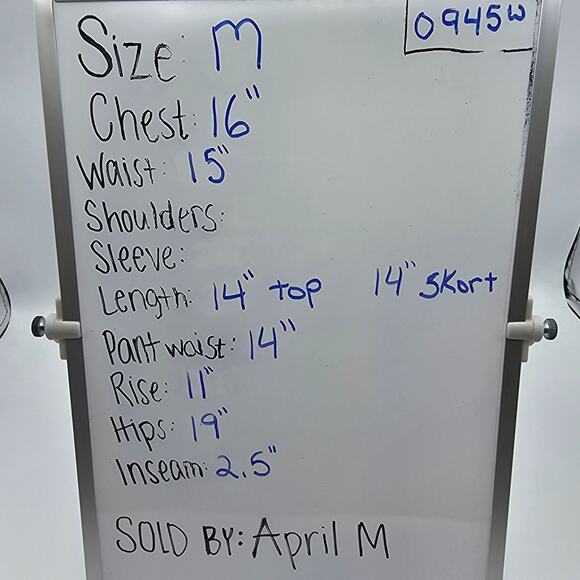 0945W
Size: M
Chest: 16"
Waist: 15"
Shoulders:
Sleeve:
Length: 14" top 14" skort
Pant waist: 14"
Rise: 11"
Hips: 19"
Inseam: 2.5"
SOLD BY: April M